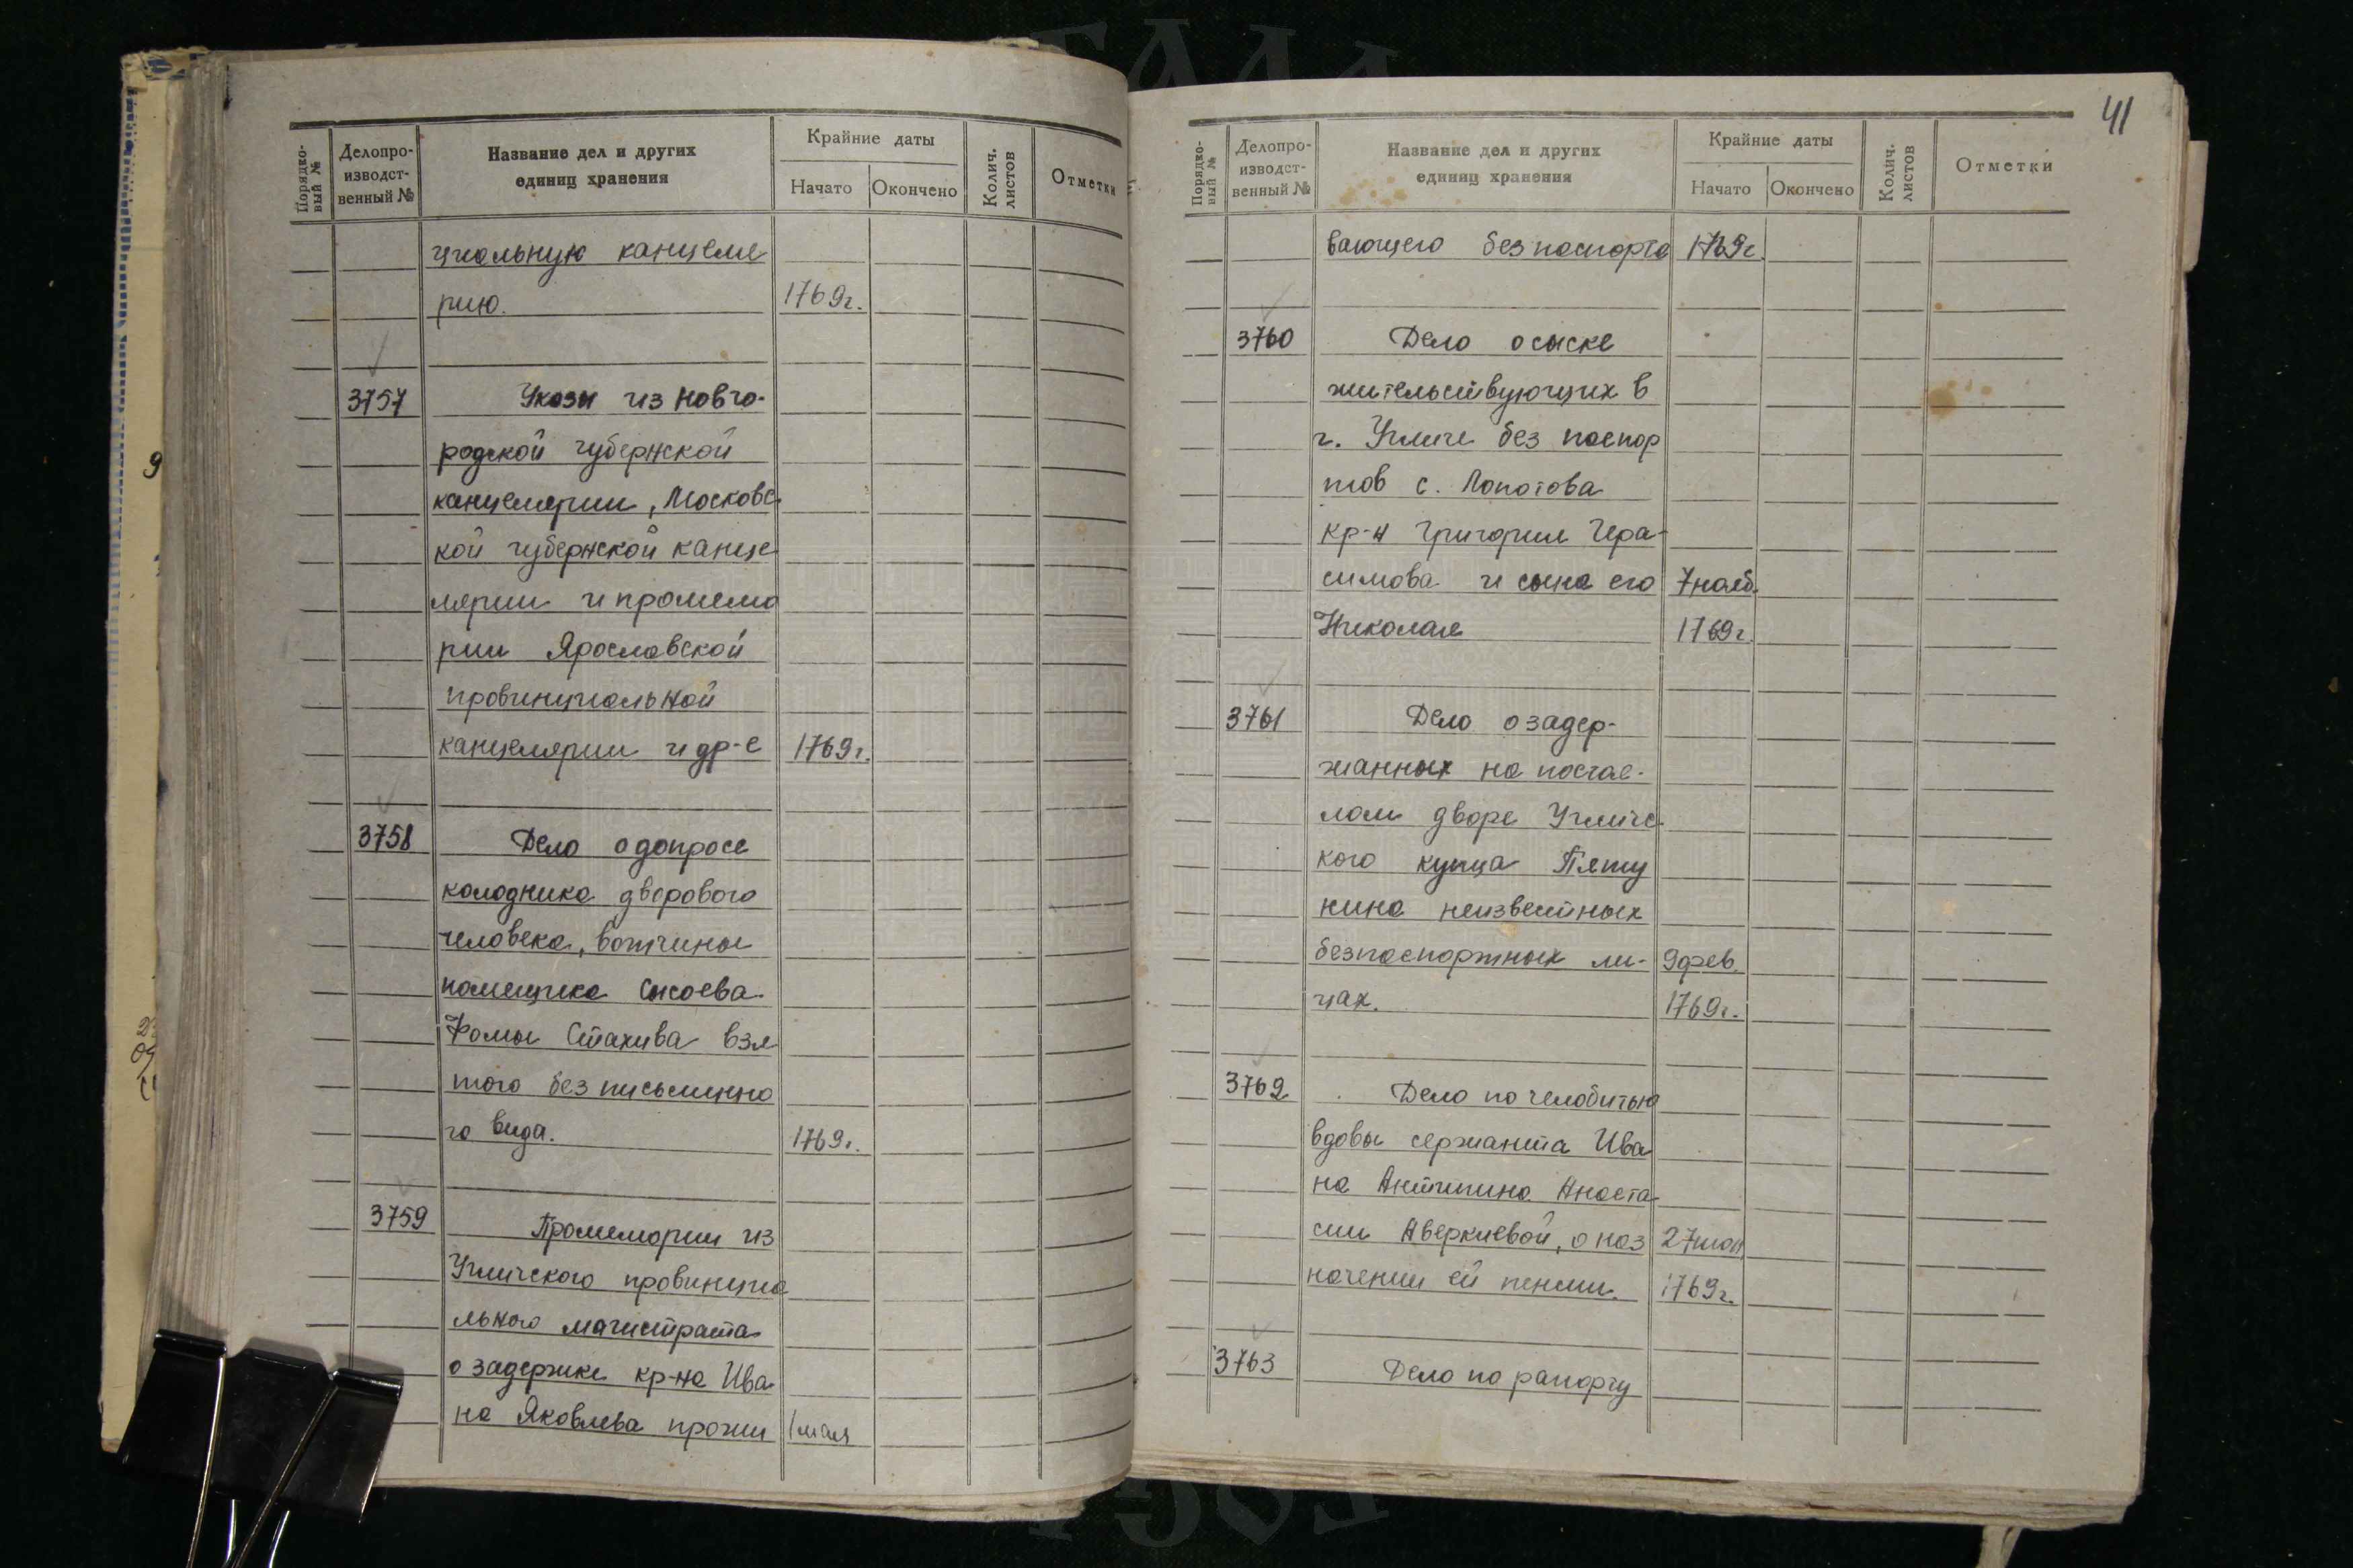 Порядко-
вый №
Делопро-
изводст-
венный №
Название дел и других
единиц хранения
Крайние даты
Начато
Окончено
Колич.
листов
Отметки
циальную канцеля
рию. 1769г.
3757 Указы из Новго-
родской губернской
канцелярии, Московс
кой губернской канце
лярии и промемо
рии Ярославской
провинциальной
канцелярии и др-е 1769г.
3758 Дело о допросе
колодника дворового
человека, вотчины
помещика Сысоева
Фомы Стахива взя
того без письменно
го вида. 1769г.
3759 Промемории из
Угличского провинциа
льного магистрата
о задержке кр-на Ива
на Яковлева прожи 1 мая
41
Порядко-
вый №
Делопро-
изводст-
венный №
Название дел и других
единиц хранения
Крайние даты
Начато
Окончено
Колич.
листов
Отметки
вающего без паспорта 1769г.
3760 Дело о сыске
жительствующих в
г. Угличе без паспор
тов с. Лопотова
кр-н Григория Гера-
симова и сына его 7 нояб.
Николая 1769г.
3761 Дело о задер-
жанных на постое-
лом дворе Угличс
кого купца Пяту
нина неизвестных
безпаспортных ли- 9 фев.
цах. 1769г.
3762 Дело по челобитью
вдовы сержанта Ива
на Антипина Анаста
сии Аверкиевой, о наз 27
начении ей пенсии. 1769г.
3763 Дело по рапорту